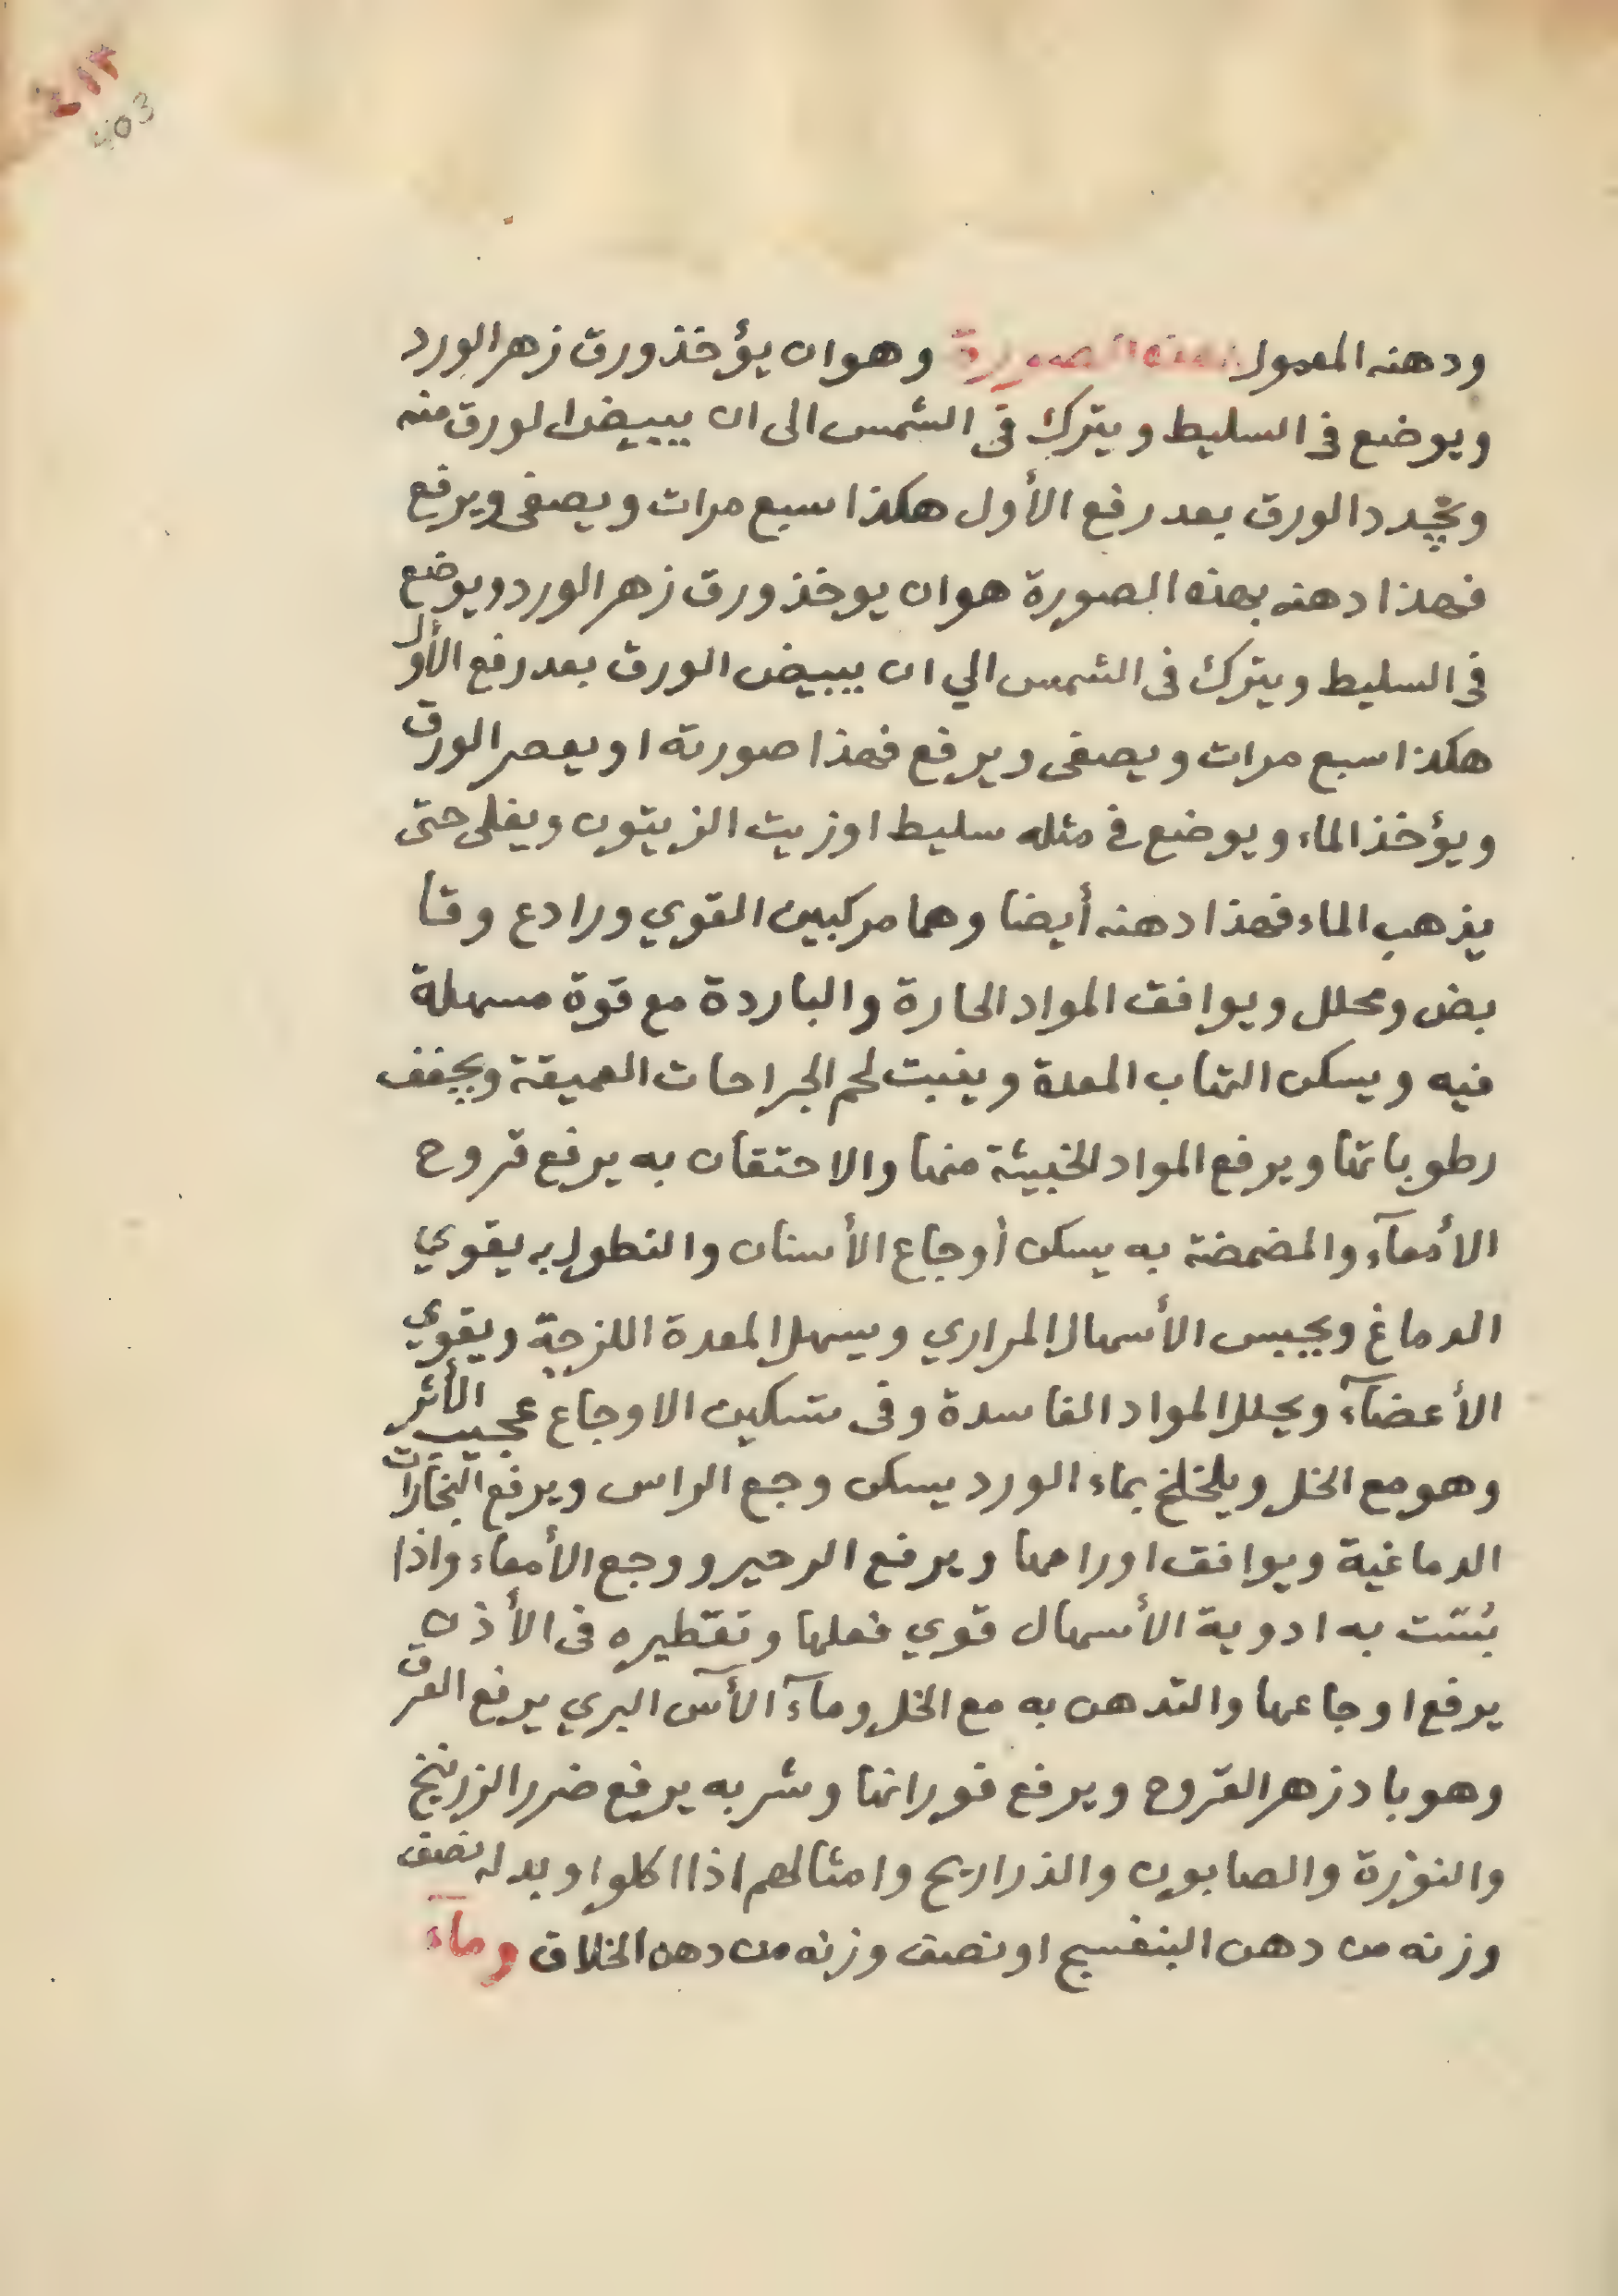 403
ودهنه المعمول بهذه الصورة وهو ان يؤخذ ورق زهر الورد
ويوضع في السليط ويترك في الشمس الى ان يبيض الورق منه
ويجدد الورق بعد رفع الأول هكذا سبع مرات ويصفى ويرفع
فهذا دهنه بهذه الصورة هو ان يوخذ ورق زهر الورد ويوضع
في السليط ويترك في الشمس الي ان يبيض الورق بعد رفع الأول
هكذا سبع مرات ويصفى ويرفع فهذا صورته او يعصر الورق
ويؤخذ الماء ويوضع في مثله سليط او زيت الزيتون ويغلى حتى
يذهب الماء فهذا دهنه أيضا وهما مركبين القوي ورادع وقا
بض ومحلل ويوافق المواد الحارة والباردة مع قوة مسهلة
فيه ويسكن التهاب المعدة وينبت لحم الجراحات العميقة ويجفف
رطوباتها ويرفع المواد الخبيثة منها والاحتقان به يرفع قروح
الأمعآء والمضمضة به يسكن أوجاع الأسنان والنطول به يقوي
الدماغ ويحبس الأسهال المراري ويسهل المعدة اللزجة ويقوي
الأعضآء ويحلل المواد الفاسدة وفى تسكين الاوجاع عجيب الأثر
وهو مع الخل ويلخلخ بماء الورد يسكن وجع الراس ويرفع البخارات
الدماغية ويوافق اورامها ويرفع الرحير ووجع الأمعاء واذا
بُسّت به ادوية الأسهال قوي فعلها وتقطيره فى الأذن
يرفع اوجاعها والتدهن به مع الخل ومآء الآس البري يرفع العرق
وهو بادزهر القروح ويرفع فورانها وشربه يرفع ضرر الزرنيخ
والنورة والصابون والذراريح وامثالهم اذا اكلوا وبدله نصف
وزنه من دهن البنفسج او نصف وزنه من دهن الخلاف ومآء